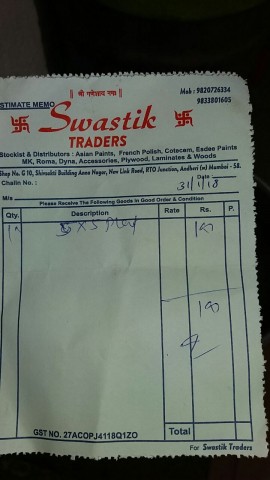 || श्री गणेशाय नमः ||
Mob : 9820726334
9833801605
STIMATE MEMO
Swastik
TRADERS
Stockist & Distributors : Asian Paints, French Polish, Cotecam, Esdee Paints
MK, Roma, Dyna, Accessories, Plywood, Laminates & Woods
Shop No. G 10, Shivsakti Building Anna Nagar, New Link Road, RTO Junction, Andheri (w) Mumbai - 58.
Chalin No. :
Date
31/1/18
M/s
Please Receive The Following Goods in Good Order & Condition
Qty. Description Rate Rs. P.
Total
GST NO. 27ACOPJ4118Q1ZO
For Swastik Traders